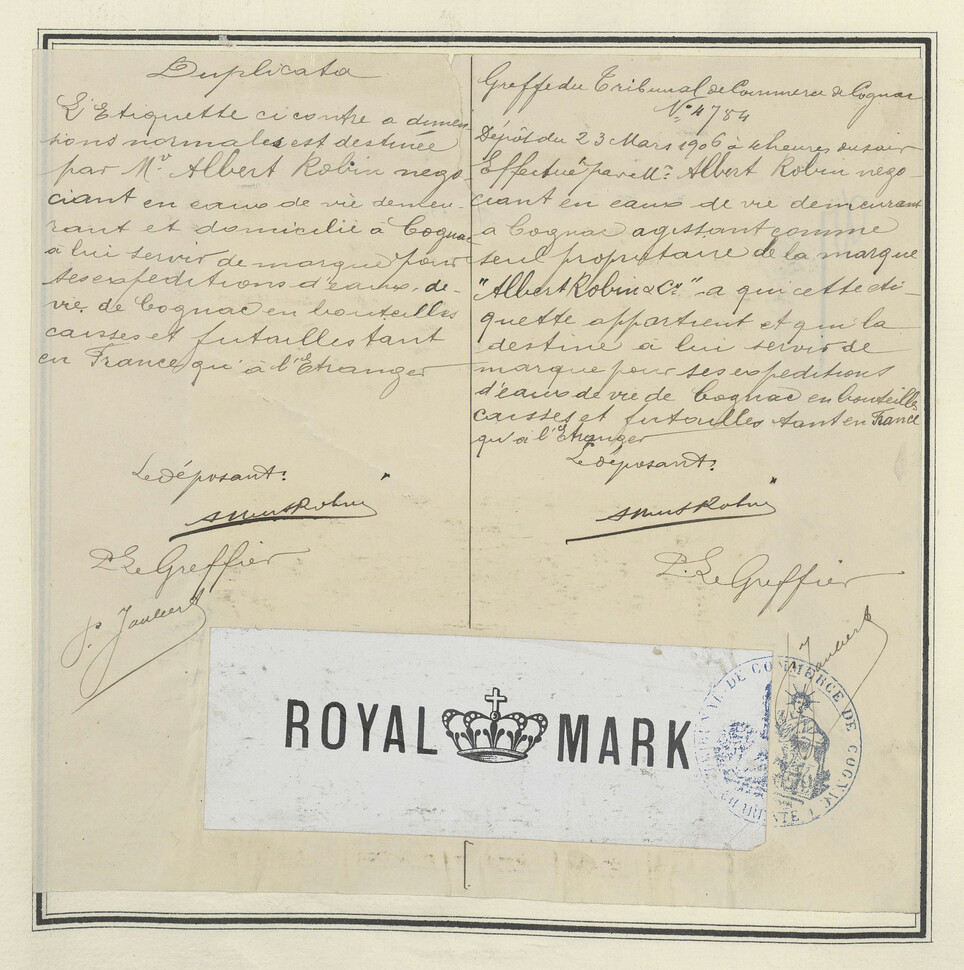 Duplicata
L'Etiquette ci contre a dimen-
sions normales est destinée
par Mr Albert Robin négo-
ciant en eaux de vie demeu-
rant et domicilié à Cognac
à lui servir de marque pour
ses expeditions d'eaux-de-
vie de Cognac en bouteilles
caisses et futailles tant
en France qu'à l'Etranger
Le déposant:
Albert Robin
P. Le Greffier
Greffe du Tribunal de Commerce de Cognac
No 4784
Dépôt du 23 Mars 1906 à 4 heures du soir
Effectué par Mr Albert Robin négo-
ciant en eaux de vie demeurant
a Cognac agissant comme
seul propriétaire de la marque
"Albert Robin & Co" a qui cette éti-
quette appartient et qui la
destine à lui servir de
marque pour ses expeditions
d'eaux de vie de Cognac en bouteilles
caisses et futailles tant en France
qu'à l'Etranger
Le déposant:
Albert Robin
P. Le Greffier
ROYAL MARK
TRIBUNAL DE COMMERCE DE COGNAC
CHARENTE